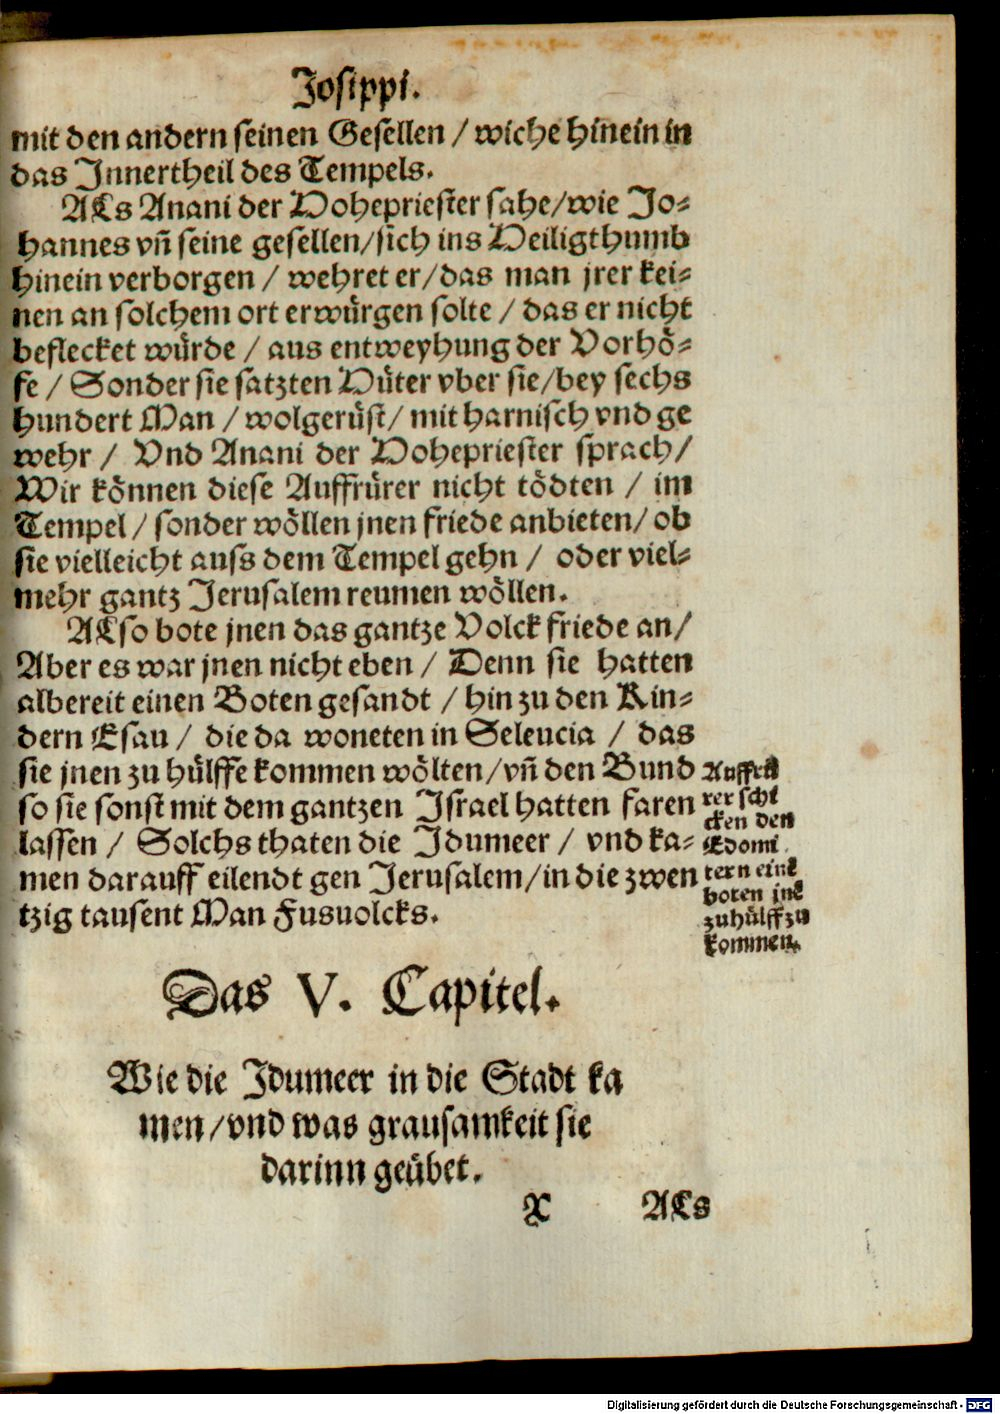 Josippi.
mit den andern seinen Gesellen / wiche hinein in
das Innertheil des Tempels.
ALs Anani der Hohepriester sahe/wie Jo⸗
hannes vñ seine gesellen/sich ins Heiligthumb
hinein verborgen / wehret er/das man jrer kei⸗
nen an solchem ort erwürgen solte / das er nicht
beflecket würde / aus entweyhung der Vorhö⸗
fe / Sonder sie satzten Hüter vber sie/bey sechs
hundert Man / wolgerüst/ mit harnisch vnd ge
wehr / Vnd Anani der Hohepriester sprach/
Wir können diese Auffrürer nicht tödten / im
Tempel/ sonder wöllen jnen friede anbieten/ ob
sie vielleicht auss dem Tempel gehn / oder viel⸗
mehr gantz Jerusalem reumen wöllen.
ALso bote jnen das gantze Volck friede an/
Aber es war jnen nicht eben / Denn sie hatten
albereit einen Boten gesandt / hin zu den Kin⸗
dern Esau / die da woneten in Seleucia / das
sie jnen zu hülffe kommen wölten/vñ den Bund
so sie sonst mit dem gantzen Israel hatten faren
lassen / Solchs thaten die Idumeer / vnd ka⸗
men darauff eilendt gen Jerusalem/in die zwen
tzig tausent Man Fusuolcks.
Auffrü
rer schi
cken den
Edomi
tern eine
boten jne
zuhülff zu
kommen.
Das V. Capitel.
Wie die Idumeer in die Stadt ka
men/vnd was grausamkeit sie
darinn geübet.
X ALs
Digitalisierung gefördert durch die Deutsche Forschungsgemeinschaft - DFG